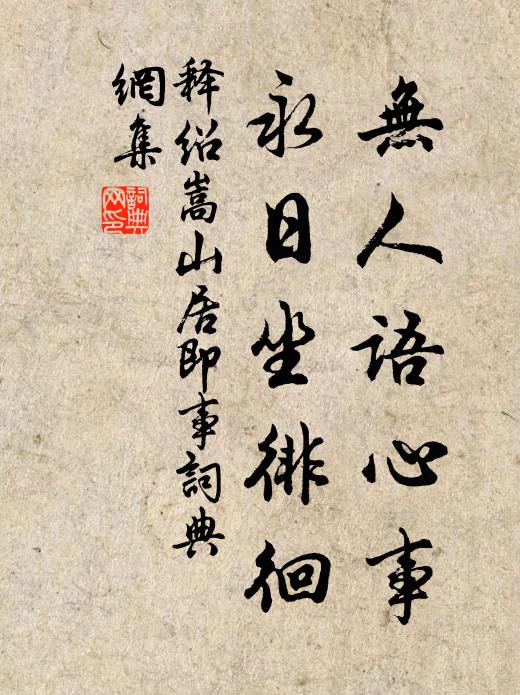 無人語心事
永日坐徘徊
释绍嵩山居即事詞典
網集
詞典网印